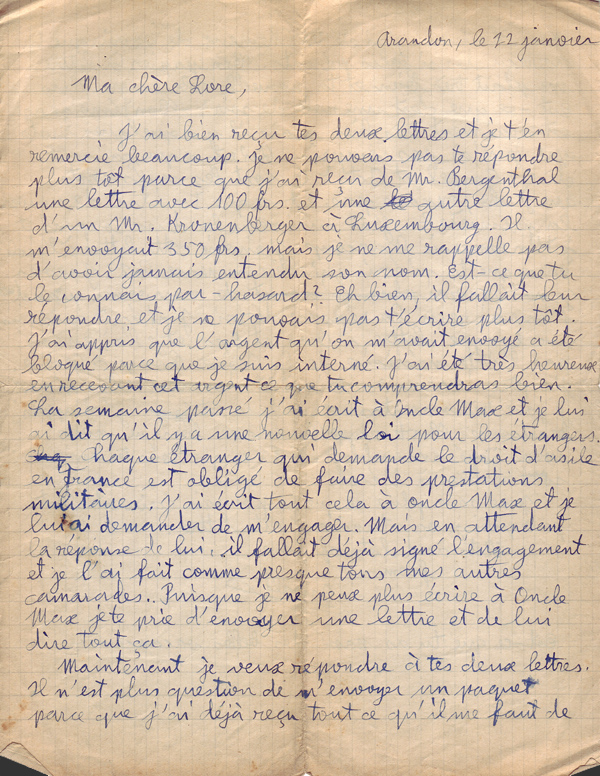 Arandon, le 22 janvier
Ma chère Lore,
J'ai bien reçu tes deux lettres et je t'en
remercie beaucoup. Je ne pouvais pas te répondre
plus tôt parce que j'ai reçu de Mr. Bergenthal
une lettre avec 100 frs. et une autre lettre
d'un Mr. Kronenberger à Luxembourg. Il
m'envoyait 350 frs, mais je ne me rappelle pas
d'avoir jamais entendu son nom. Est-ce que tu
le connais par-hasard? Eh bien, il fallait leur
répondre, et je ne pouvais pas t'écrire plus tôt.
J'ai appris que l'argent qu'on m'avait envoyé a été
bloqué parce que je suis interné. J'ai été très heureux
en recevant cet argent ce que tu comprendras bien.
La semaine passé j'ai écrit à Oncle Max et je lui
ai dit qu'il y a une nouvelle loi pour les étrangers.
Chaque étranger qui demande le droit d'asile
en France est obligé de faire des prestations
militaires. J'ai écrit tout cela à Oncle Max et je
lui ai demander de m'engager. Mais en attendant
la réponse de lui, il fallait déjà signé l'engagement
et je l'ai fait comme presque tous mes autres
camarades.. Puisque je ne peux plus écrire à Oncle
Max je te prie d'envoyer une lettre et de lui
dire tout ça.
Maintenant je veux répondre à tes deux lettres.
Il n'est plus question de m'envoyer un paquet
parce que j'ai déjà reçu tout ce qu'il me faut de